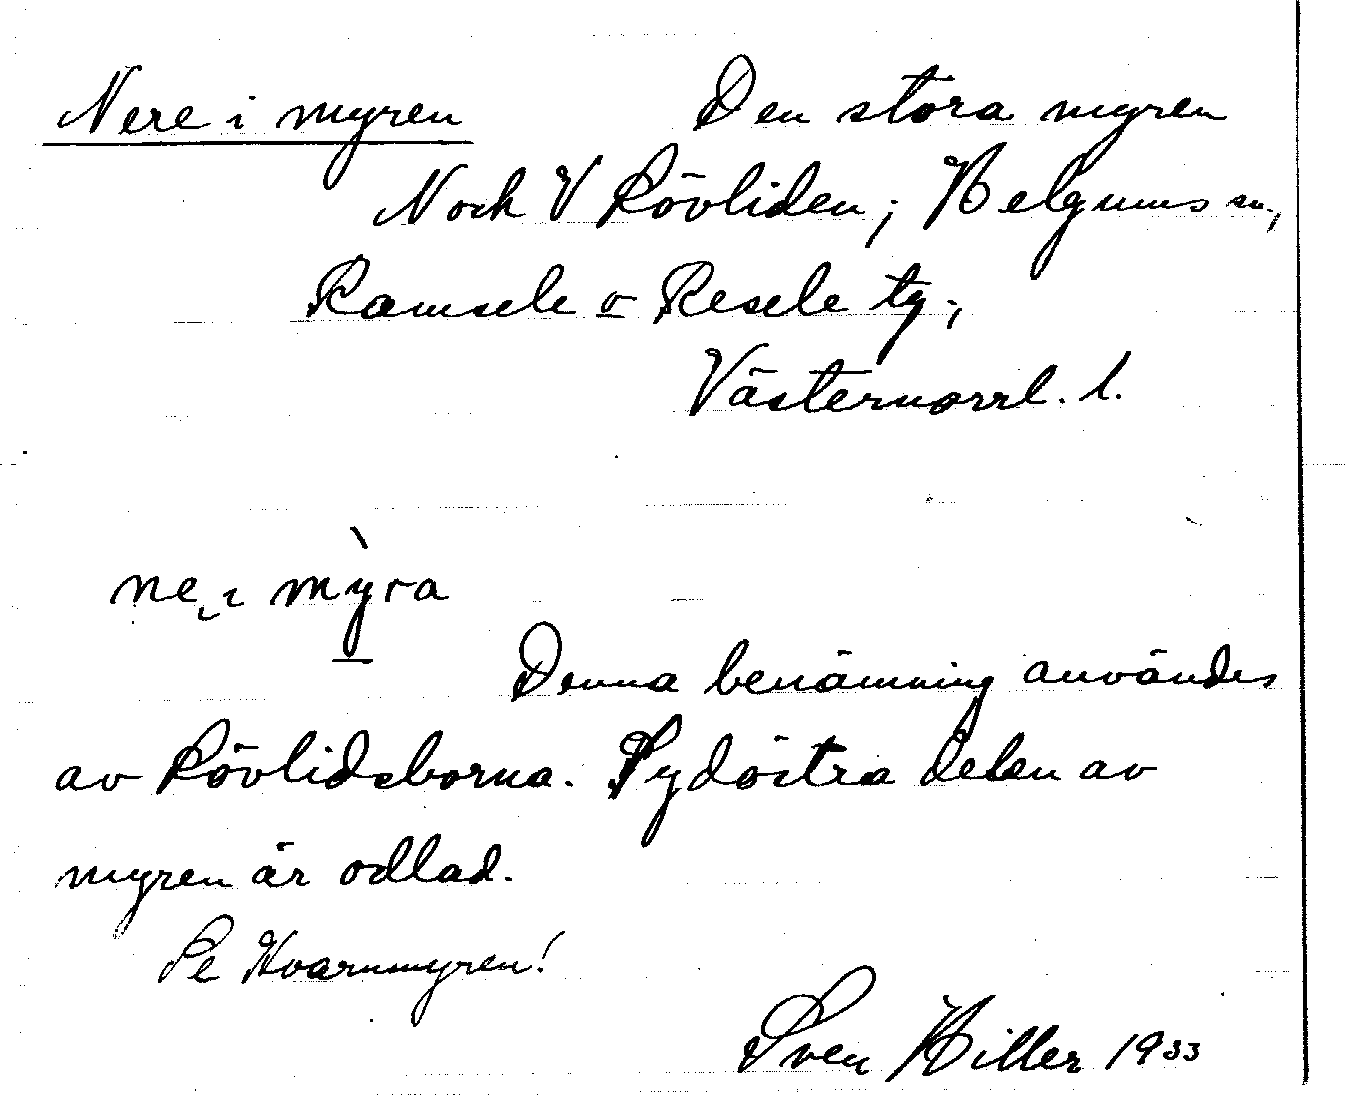 Nere i myren Den stora myren
N och V Rövliden, Helgums sn.,
Ramsele o Resele tg.,
Västernorrl. l.
ne i myra
Denna benämning användes
av Rövlidsborna. Sydöstra delen av
myren är odlad.
Se Kvarnmyren!
Sven Hiller 1933